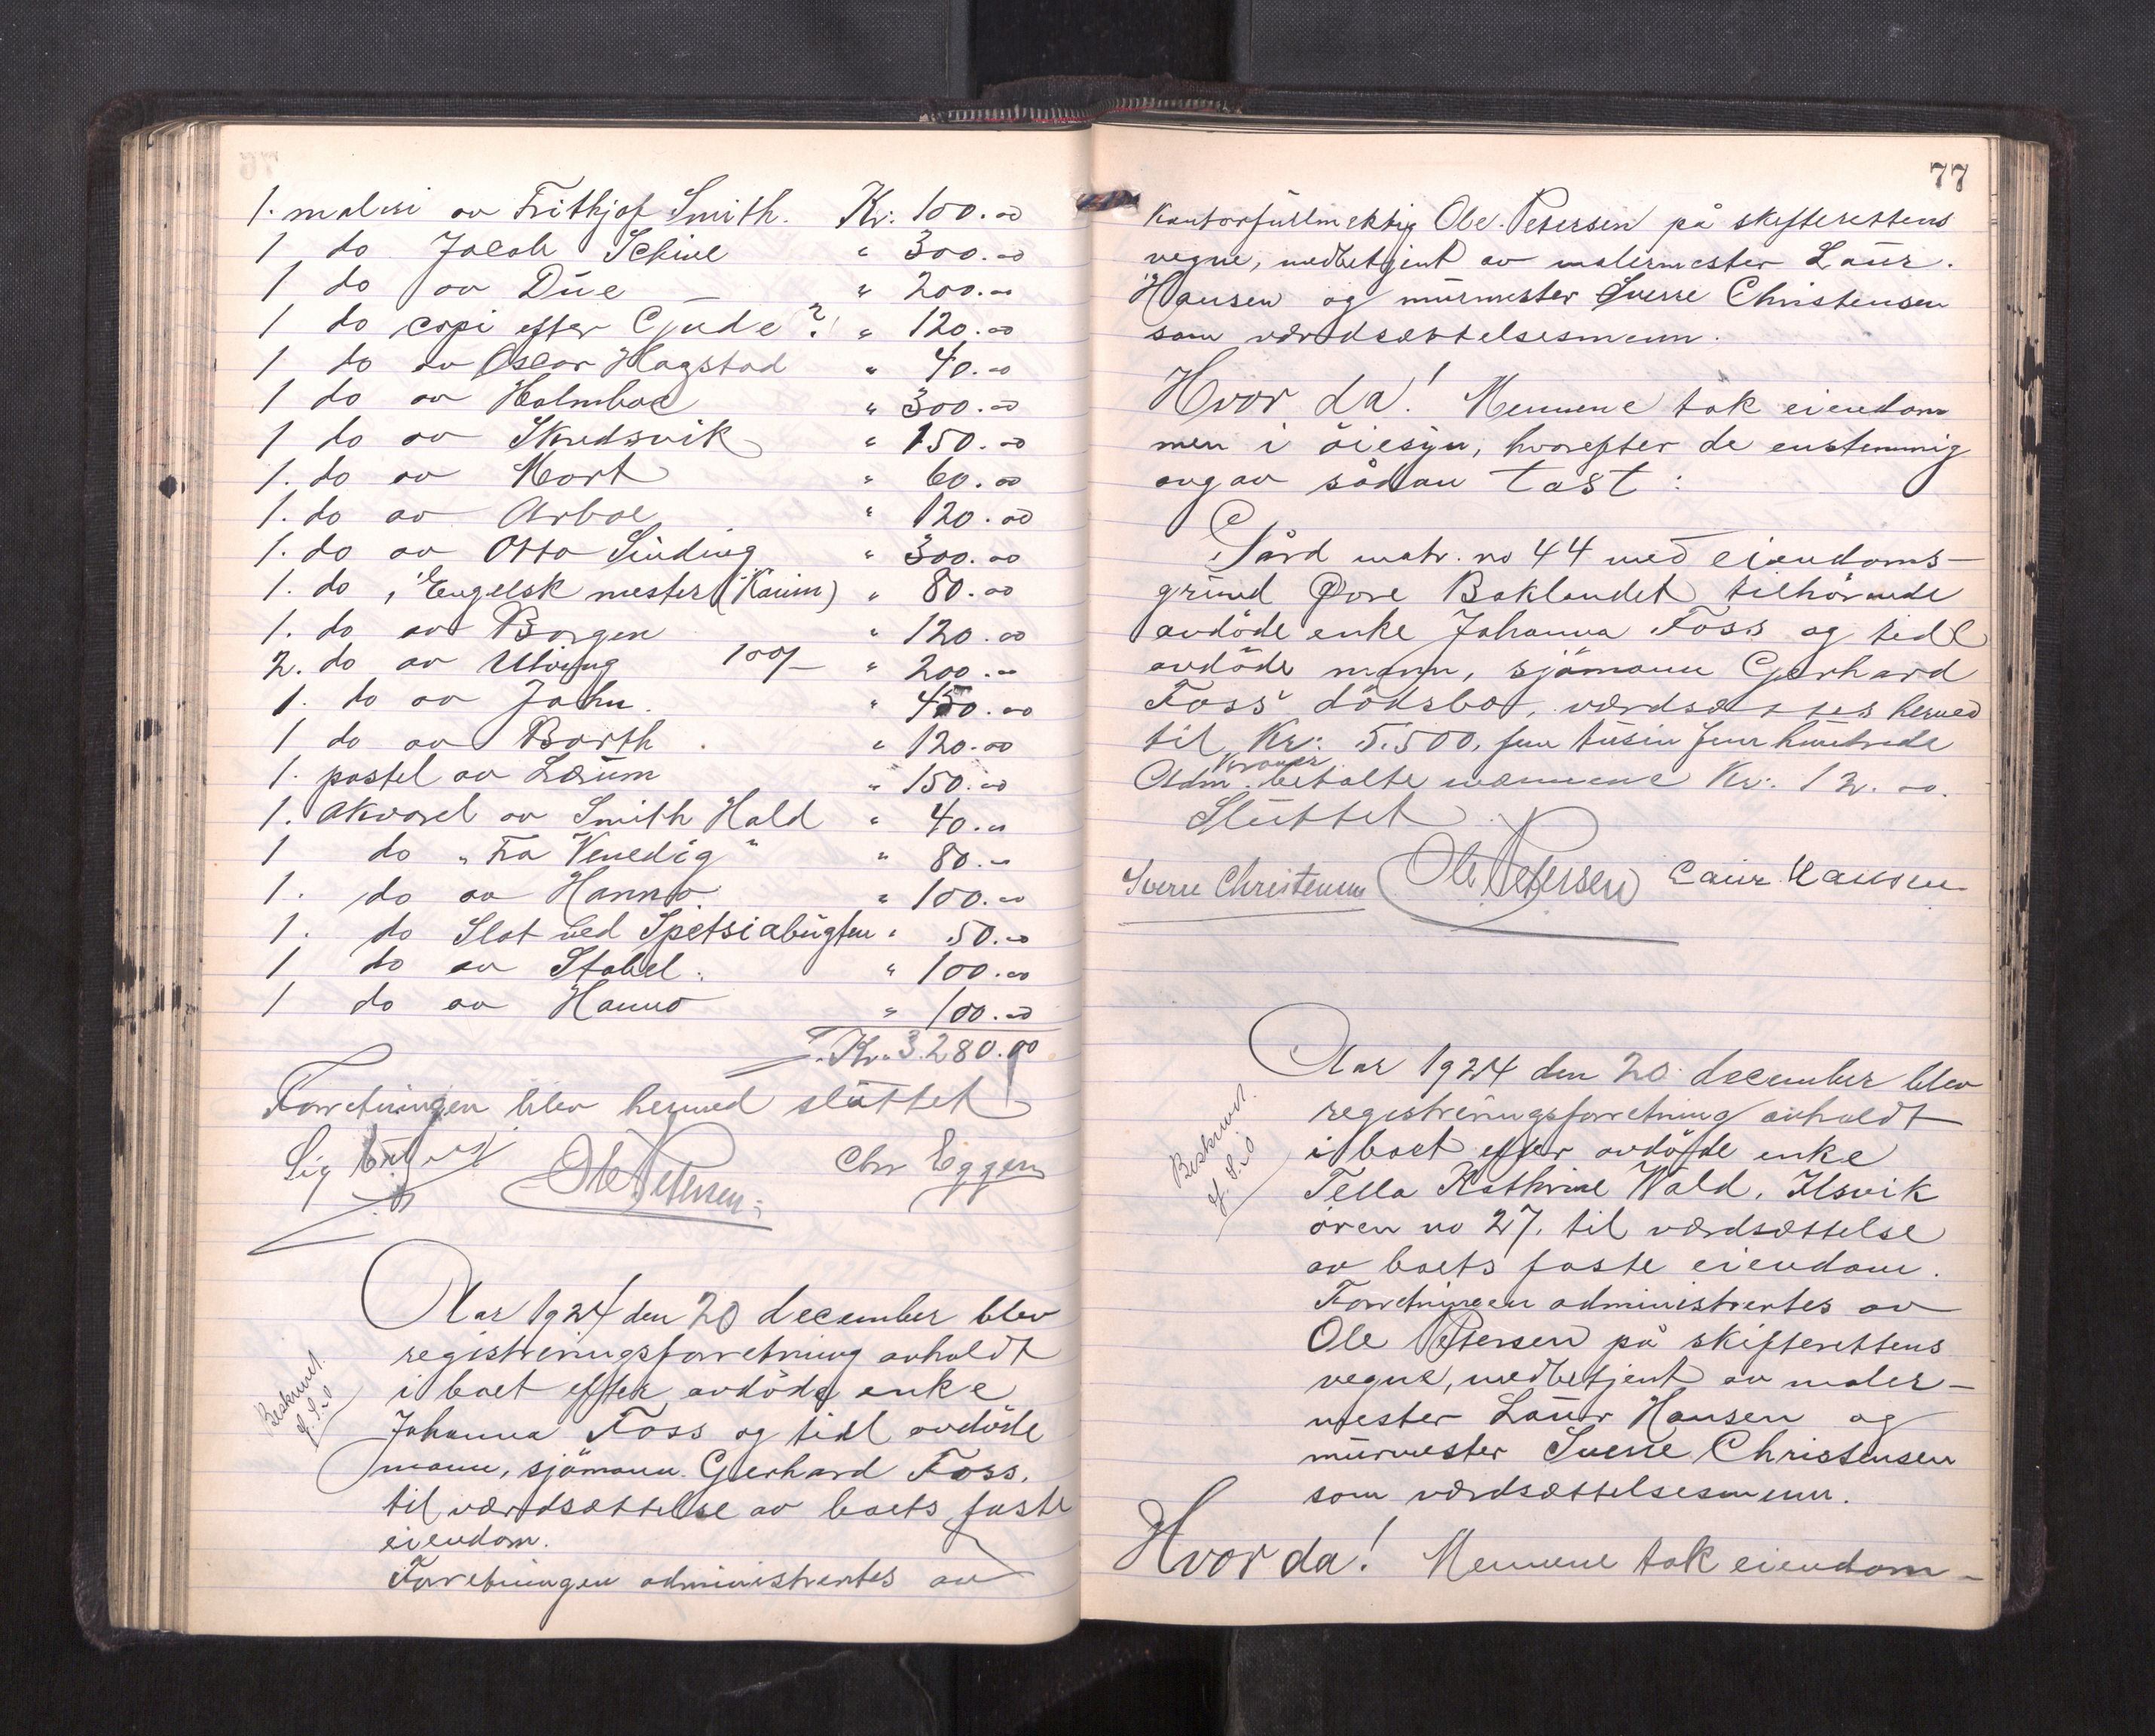 1. maleri av Frithjof Smith. Kr: 100.00
1 do Jacob Schive " 300.00
1 do av Düe — " 200.00
1 do copi efter Gude? " 120.00
1 do av Oscar Hagstad " 40.00
1 do av Holmboe " 300.00
1 do av Skredsvik " 150.00
1. do av " 60.00
1. do av Arboe " 120.00
1. do av Otto Sinding " 300.00
1. do, Engelsk mester " 80.00
1. do av Borgen " 120.00
2. do av Ulving 100/- " 200.00
1. do av Jahn. " 450.00
1 do av Barth. " 120.00
1. pastel av Lærum " 150.00
1. akvarel av Smith Hald " 40.00
1 do "Fra Venedig" " 80.00
1. do av Hanno. " 100.00
1. do Slot ved Spetsiabugten " 50.00
1 do av Stabel. " 100.00
1 do av Hanno " 100.00
Kr. 3.280.00
Forretningen blev hermed sluttet
Sig
Ole Petersen
Chr Eggen
Aar 1924 den 20 december blev
registreringsforretning avholdt
i boet efter avdöde enke
Johanna Foss og tidl avdöde
mann, sjömann Gerhard Foss.
til værdsættelse av boets faste
eiendom.
Forretningen administrertes av
Beskrevet.
77
Kontorfullmektig Ole Petersen på skifterettens
vegne, medbetjent av malermester Laur.
Hansen og murmester Sverre Christensen
som værdsættelsesmenn.
Hvor da! Mennene tok eiendom
men i öiesyn, hvorefter de enstemmig
avgav sådan takst:
Gård matr. no 44 med eiendoms-
grund Øvre Baklandet tilhörende
avdöde enke Johanna Foss og tidl
avdöde mann, sjömann Gerhard
Foss' dödsbo, værdsættes herved
til Kr: 5.500. fem tusin fem hundrede
kroner
Adm. betalte mennene Kr: 12.00.
Sluttet
Sverre Christensen Ole Petersen Laur. Hansen
Aar 1924 den 20. december blev
registreringsforretning avholdt
i boet efter avdöde enke
Tella Kathrine Wald, Ilsvik
ören no 27. til værdsættelse
av boets faste eiendom.
Forretningen administrertes av
Ole Petersen på skifterettens
vegne, medbetjent av maler-
mester Laur Hansen og
murmester Sverre Christensen
som værdsættelsesmenn.
Hvor da! Mennene tok eiendom-
Beskrevet.